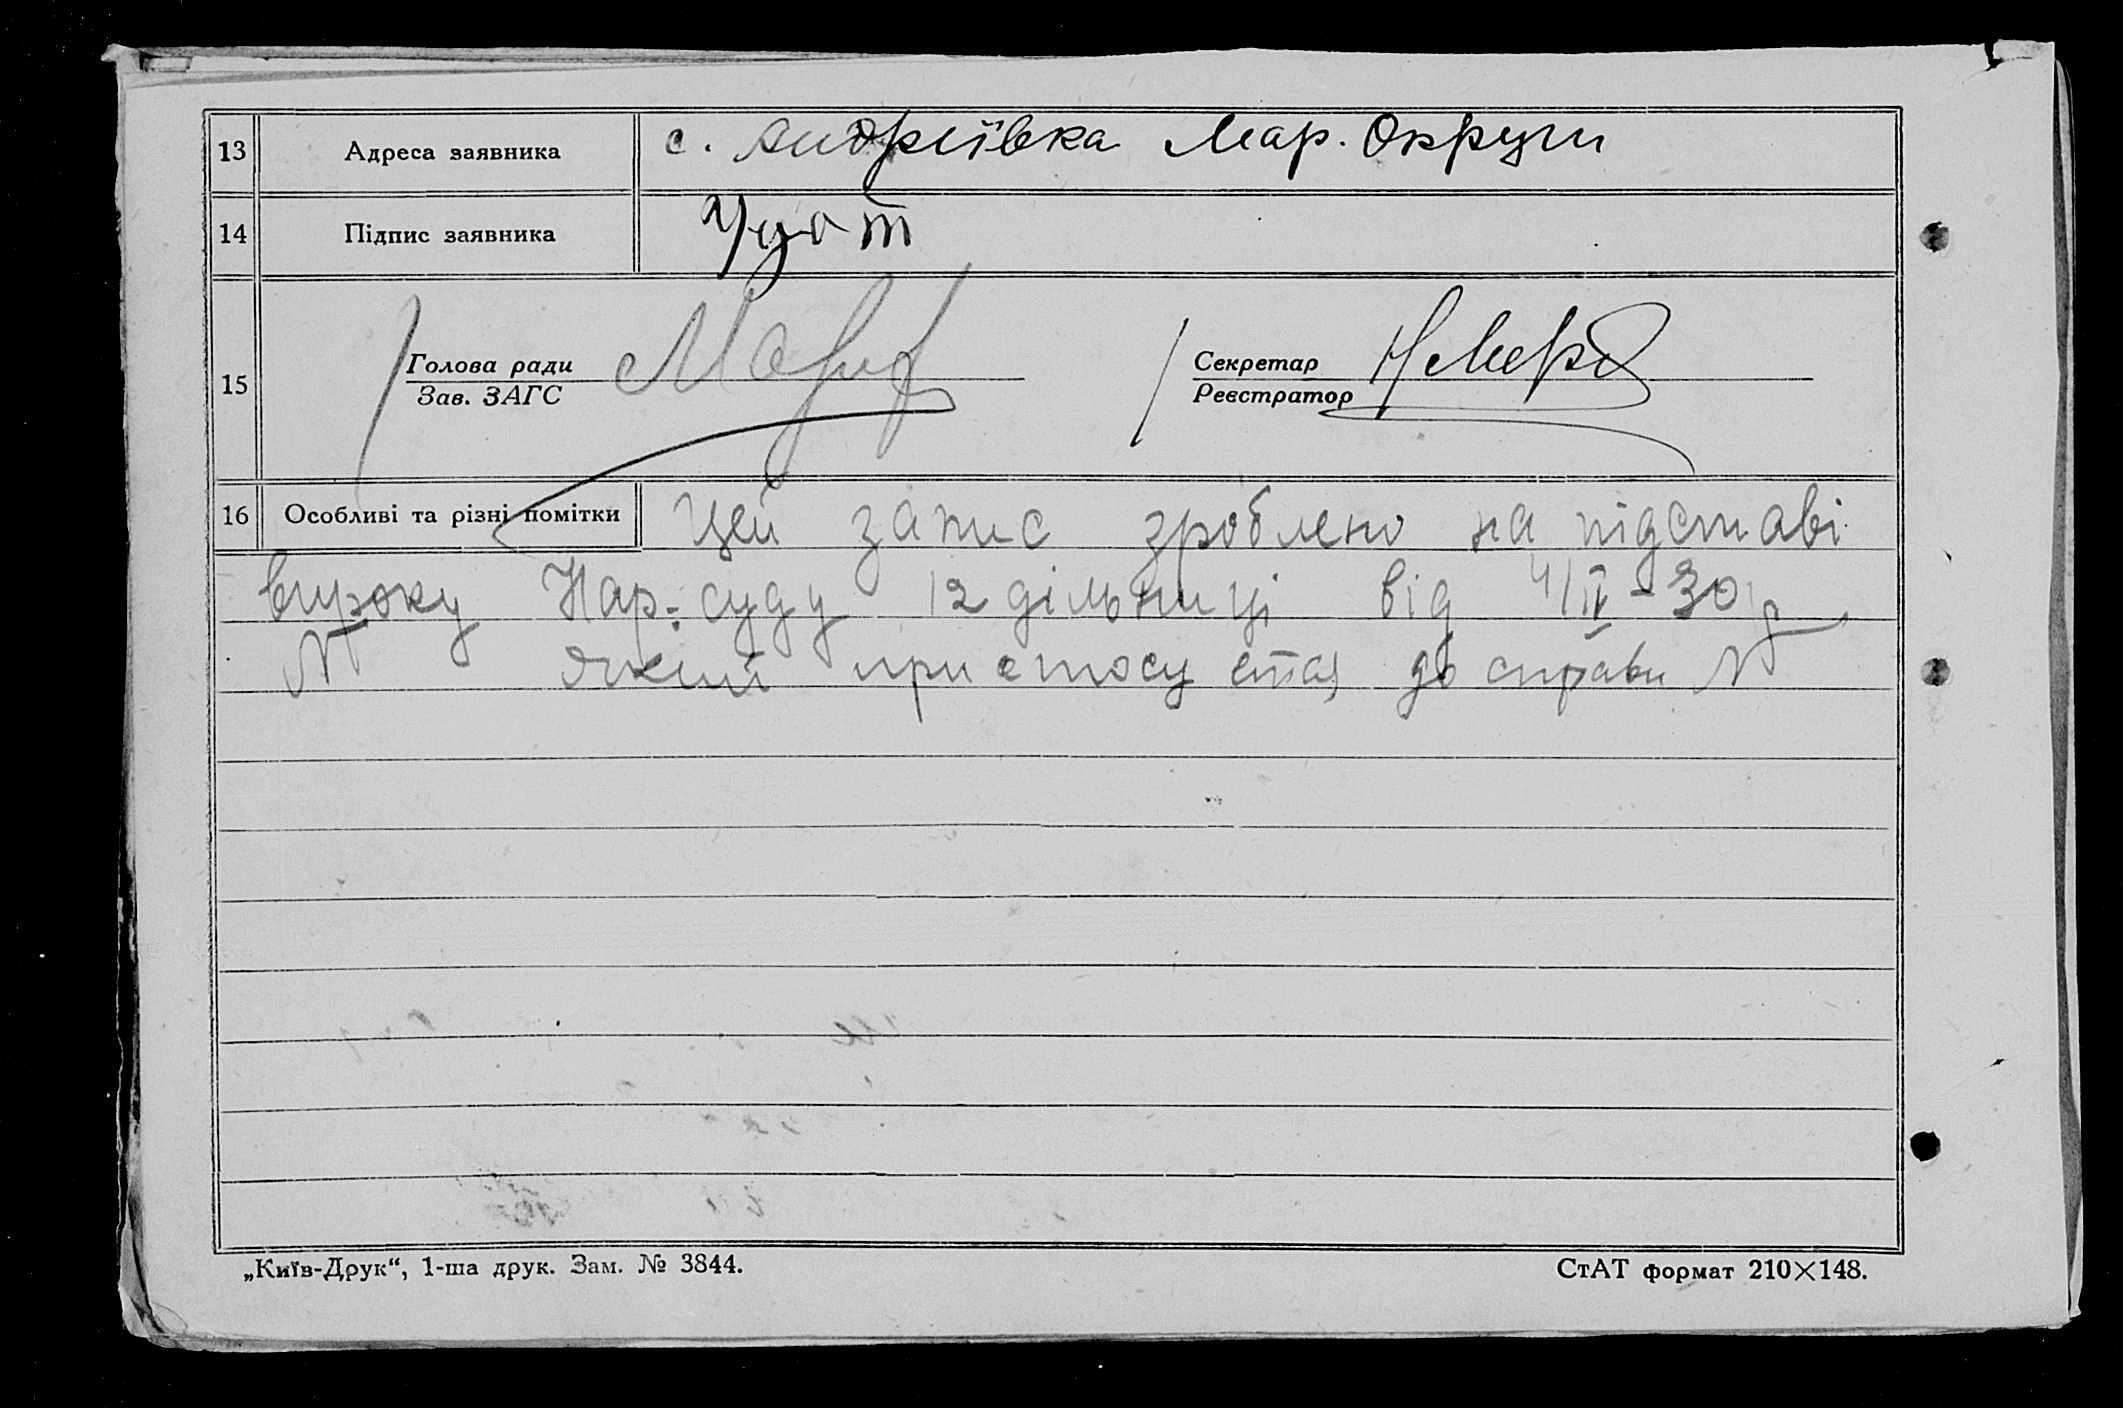 13 Адреса заявника с. Андріївка Мар. Округи
14 Підпис заявника
15 Голова ради Секретар
Зав. ЗАГС Реєстратор
16 Особливі та різні помітки Цей запис зроблено на підставі
вироку Нар. суду 12 дільниці від 4/II-30 р
№ який пристосується до справи №
„Київ-Друк“, 1-ша друк. Зам. № 3844. СтАТ формат 210×148.